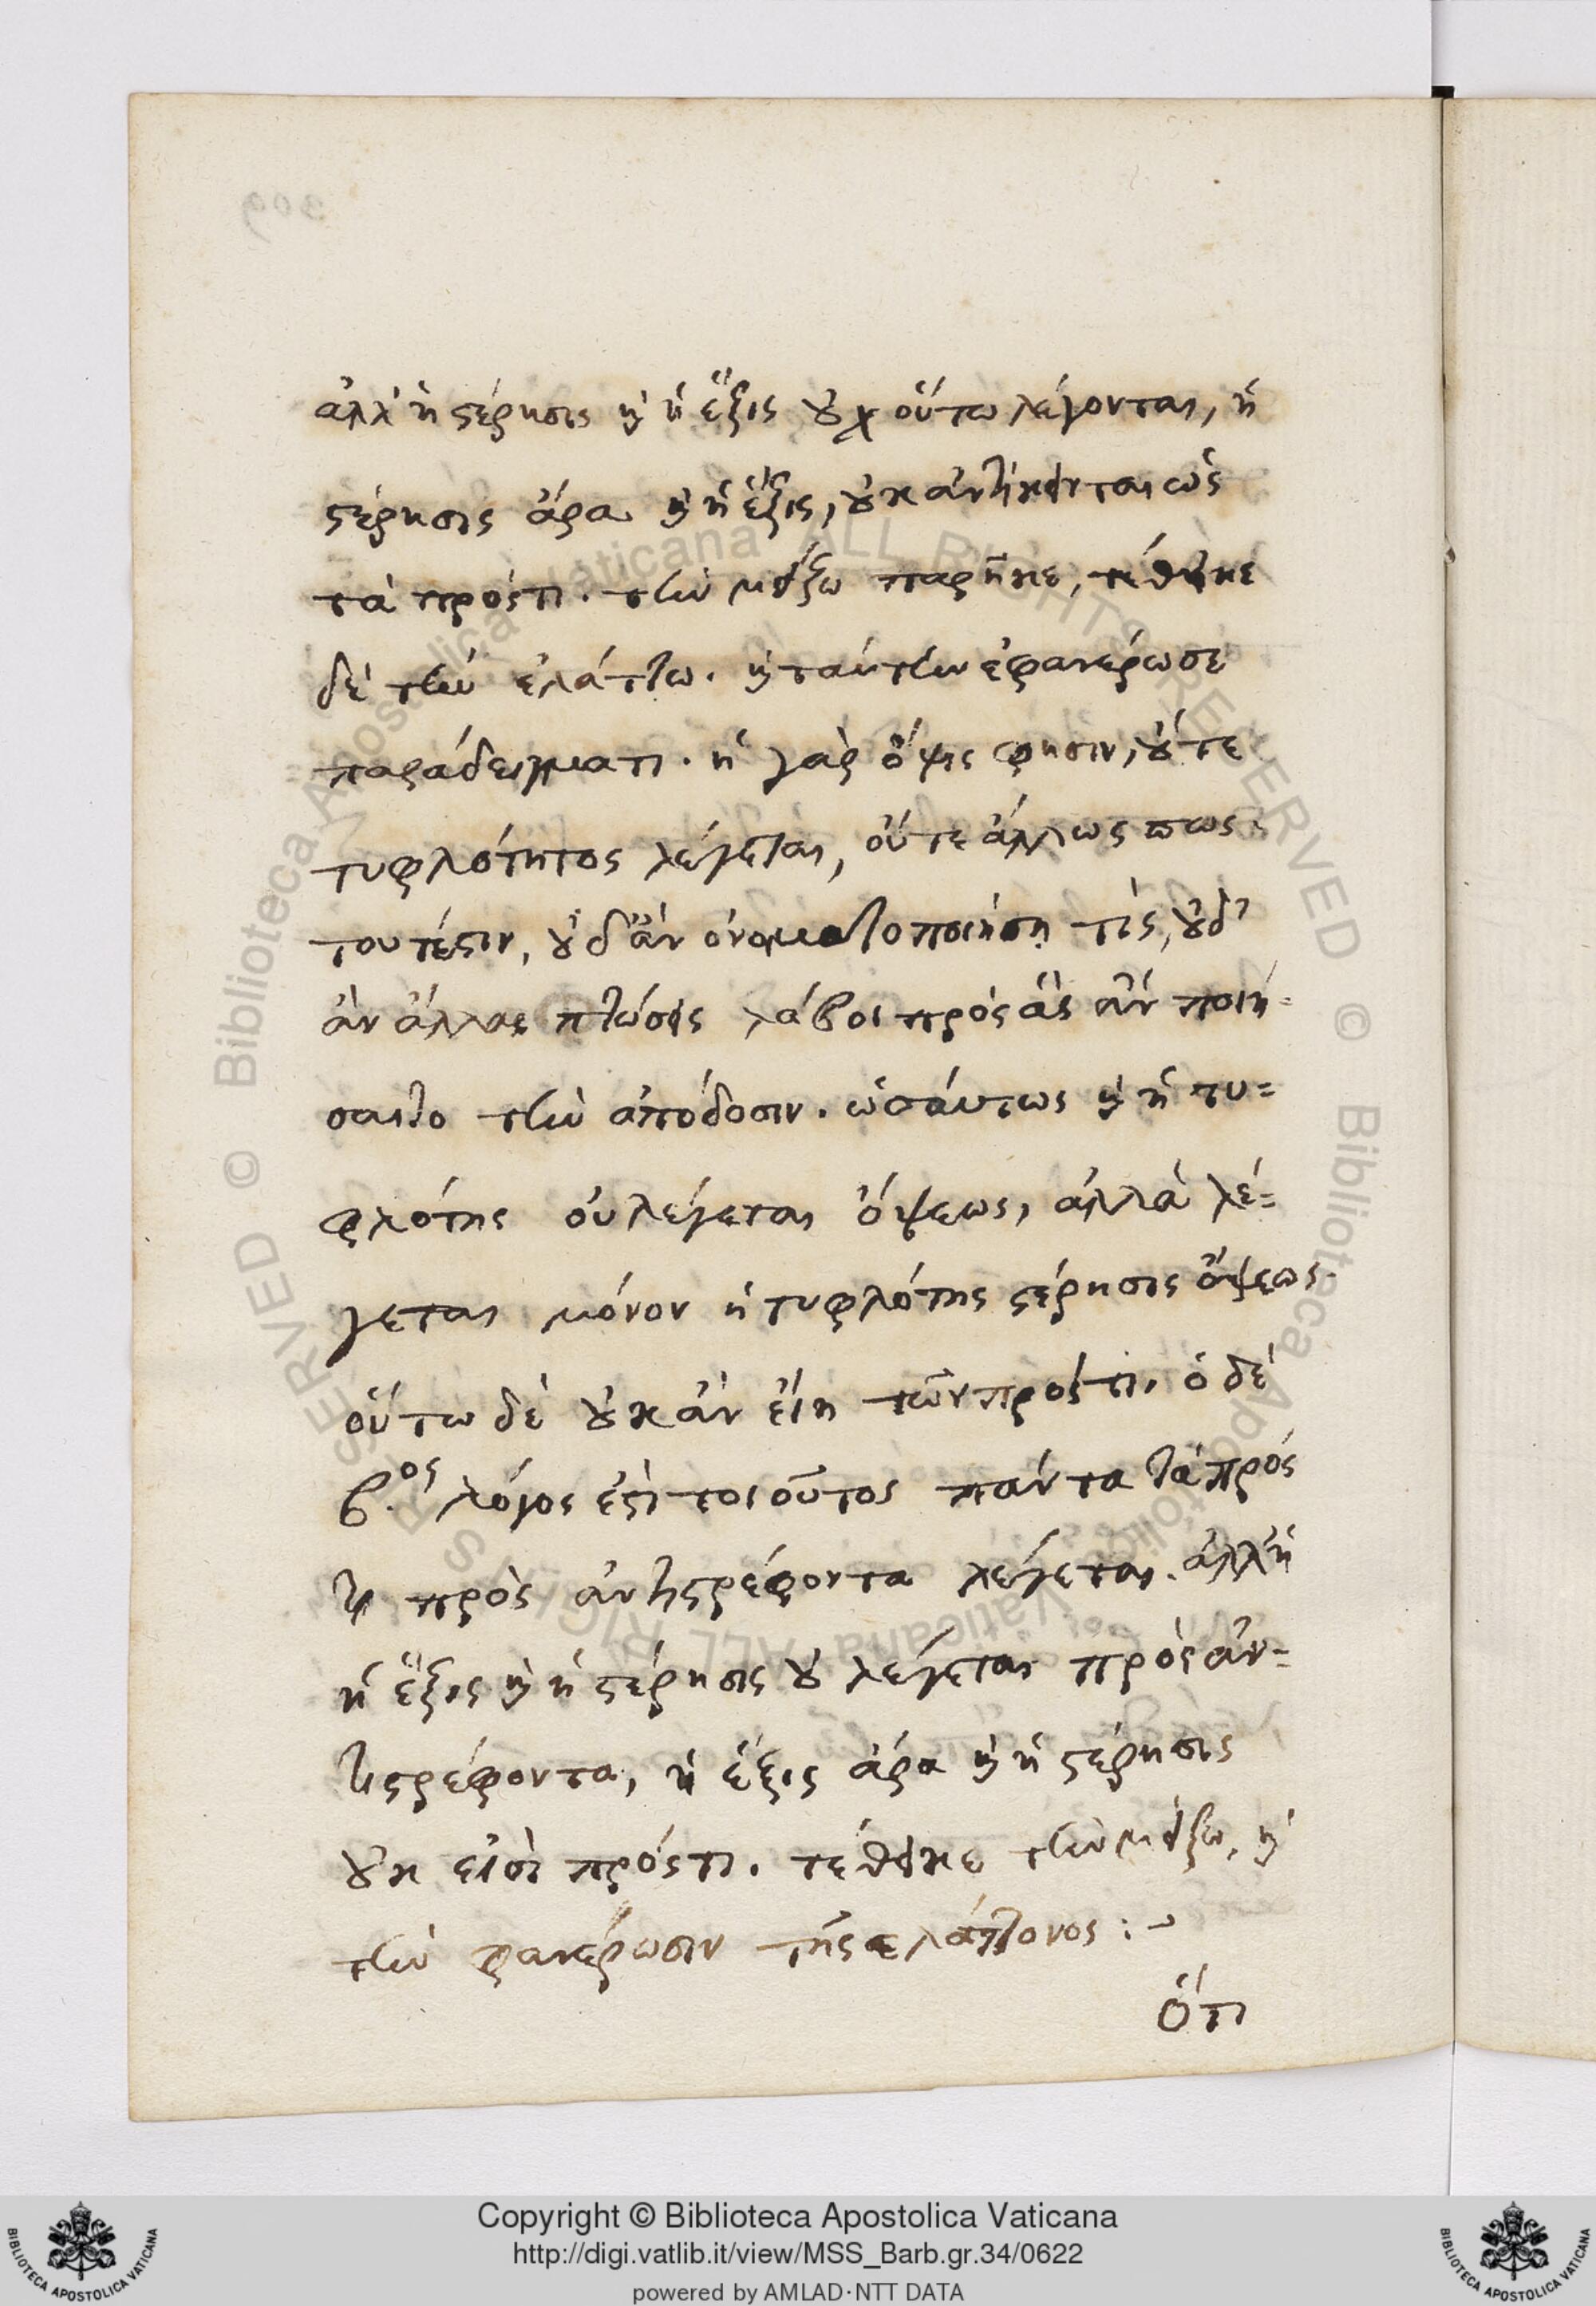 ἀλλ' ἡ στέρησις καὶ ἡ ἕξις οὐχ οὕτω λέγονται, ἡ
στέρησις ἄρα καὶ ἡ ἕξις, οὐκ ἀντίκεινται ὡς
τὰ πρόςτι. τὴν μείζω παρῆκε, τέθεικε
δὲ τὴν ἐλάττω. καὶ ταύτην ἐφανέρωσε
παράδειγματι. ἡ γὰρ ὄψις φησιν, οὔτε
τυφλότητος λέγεται, οὔτε ἄλλως πως
τουτέστιν, οὐδ' ἂν ὀνοματοποιήση τίς, οὐδ'
ἂν ἄλλας πτώσεις λάβοι πρὸς ἃς ἂν ποιή-
σαιτο τὴν ἀπόδοσιν. ὡσάυτως καὶ ἡ τυ=
φλότης οὐ λέγεται ὄψεως, ἀλλὰ λέ=
γεται μόνον ἡ τυφλότης στέρησις ὄψεως.
οὕτω δὲ οὐκ ἂν εἴη τῶν πρόςτι. ὁ δὲ
β.ος λόγος ἐστὶ τοιοῦτος πάντα τὰ πρός
τι πρὸς ἀντιστρέφοντα λέγεται. ἀλλ' ἡ
ἡ ἕξις καὶ ἡ στέρησις οὐ λέγεται πρὸς ἀν=
τιστρέφοντα, ἡ ἕξις ἄρα καὶ ἡ στέρησις
οὐκ εἰσὶ πρόςτι. τέθεικε τὴν μείζω, καὶ
τὴν φανέρωσιν τῆς ελάττονος :~
Ὅτι
Copyright © Biblioteca Apostolica Vaticana
http://digi.vatlib.it/view/MSS_Barb.gr.34/0622
powered by AMLAD·NTT DATA